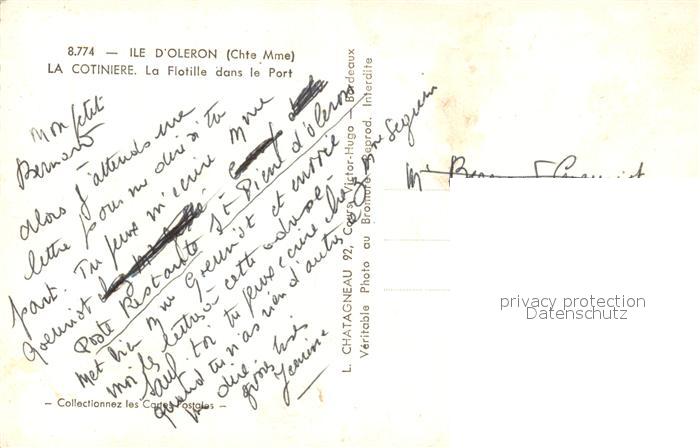 8.774 — ILE D'OLERON (Chte Mme)
LA COTINIERE. La Flotille dans le Port
Mon petit
Bernard
alors j'attends une
lettre pour me dire si tu
part. Tu peux m'écrire Mme
Quenniot
Poste Restante St Pierre d'oleron
Met bien Mme Quenniot et envoie
moi les lettres à cette adresse
sauf toi tu peux écrire chez Mme Seguin
quand tu n'as rien d'autre
me dire.
gros bises
Jeanine
— Collectionnez les Cartes Postales —
L. CHATAGNEAU 92, Cours Victor-Hugo — Bordeaux
Véritable Photo au Bromure Reprod. Interdite
Mr
privacy protection
Datenschutz